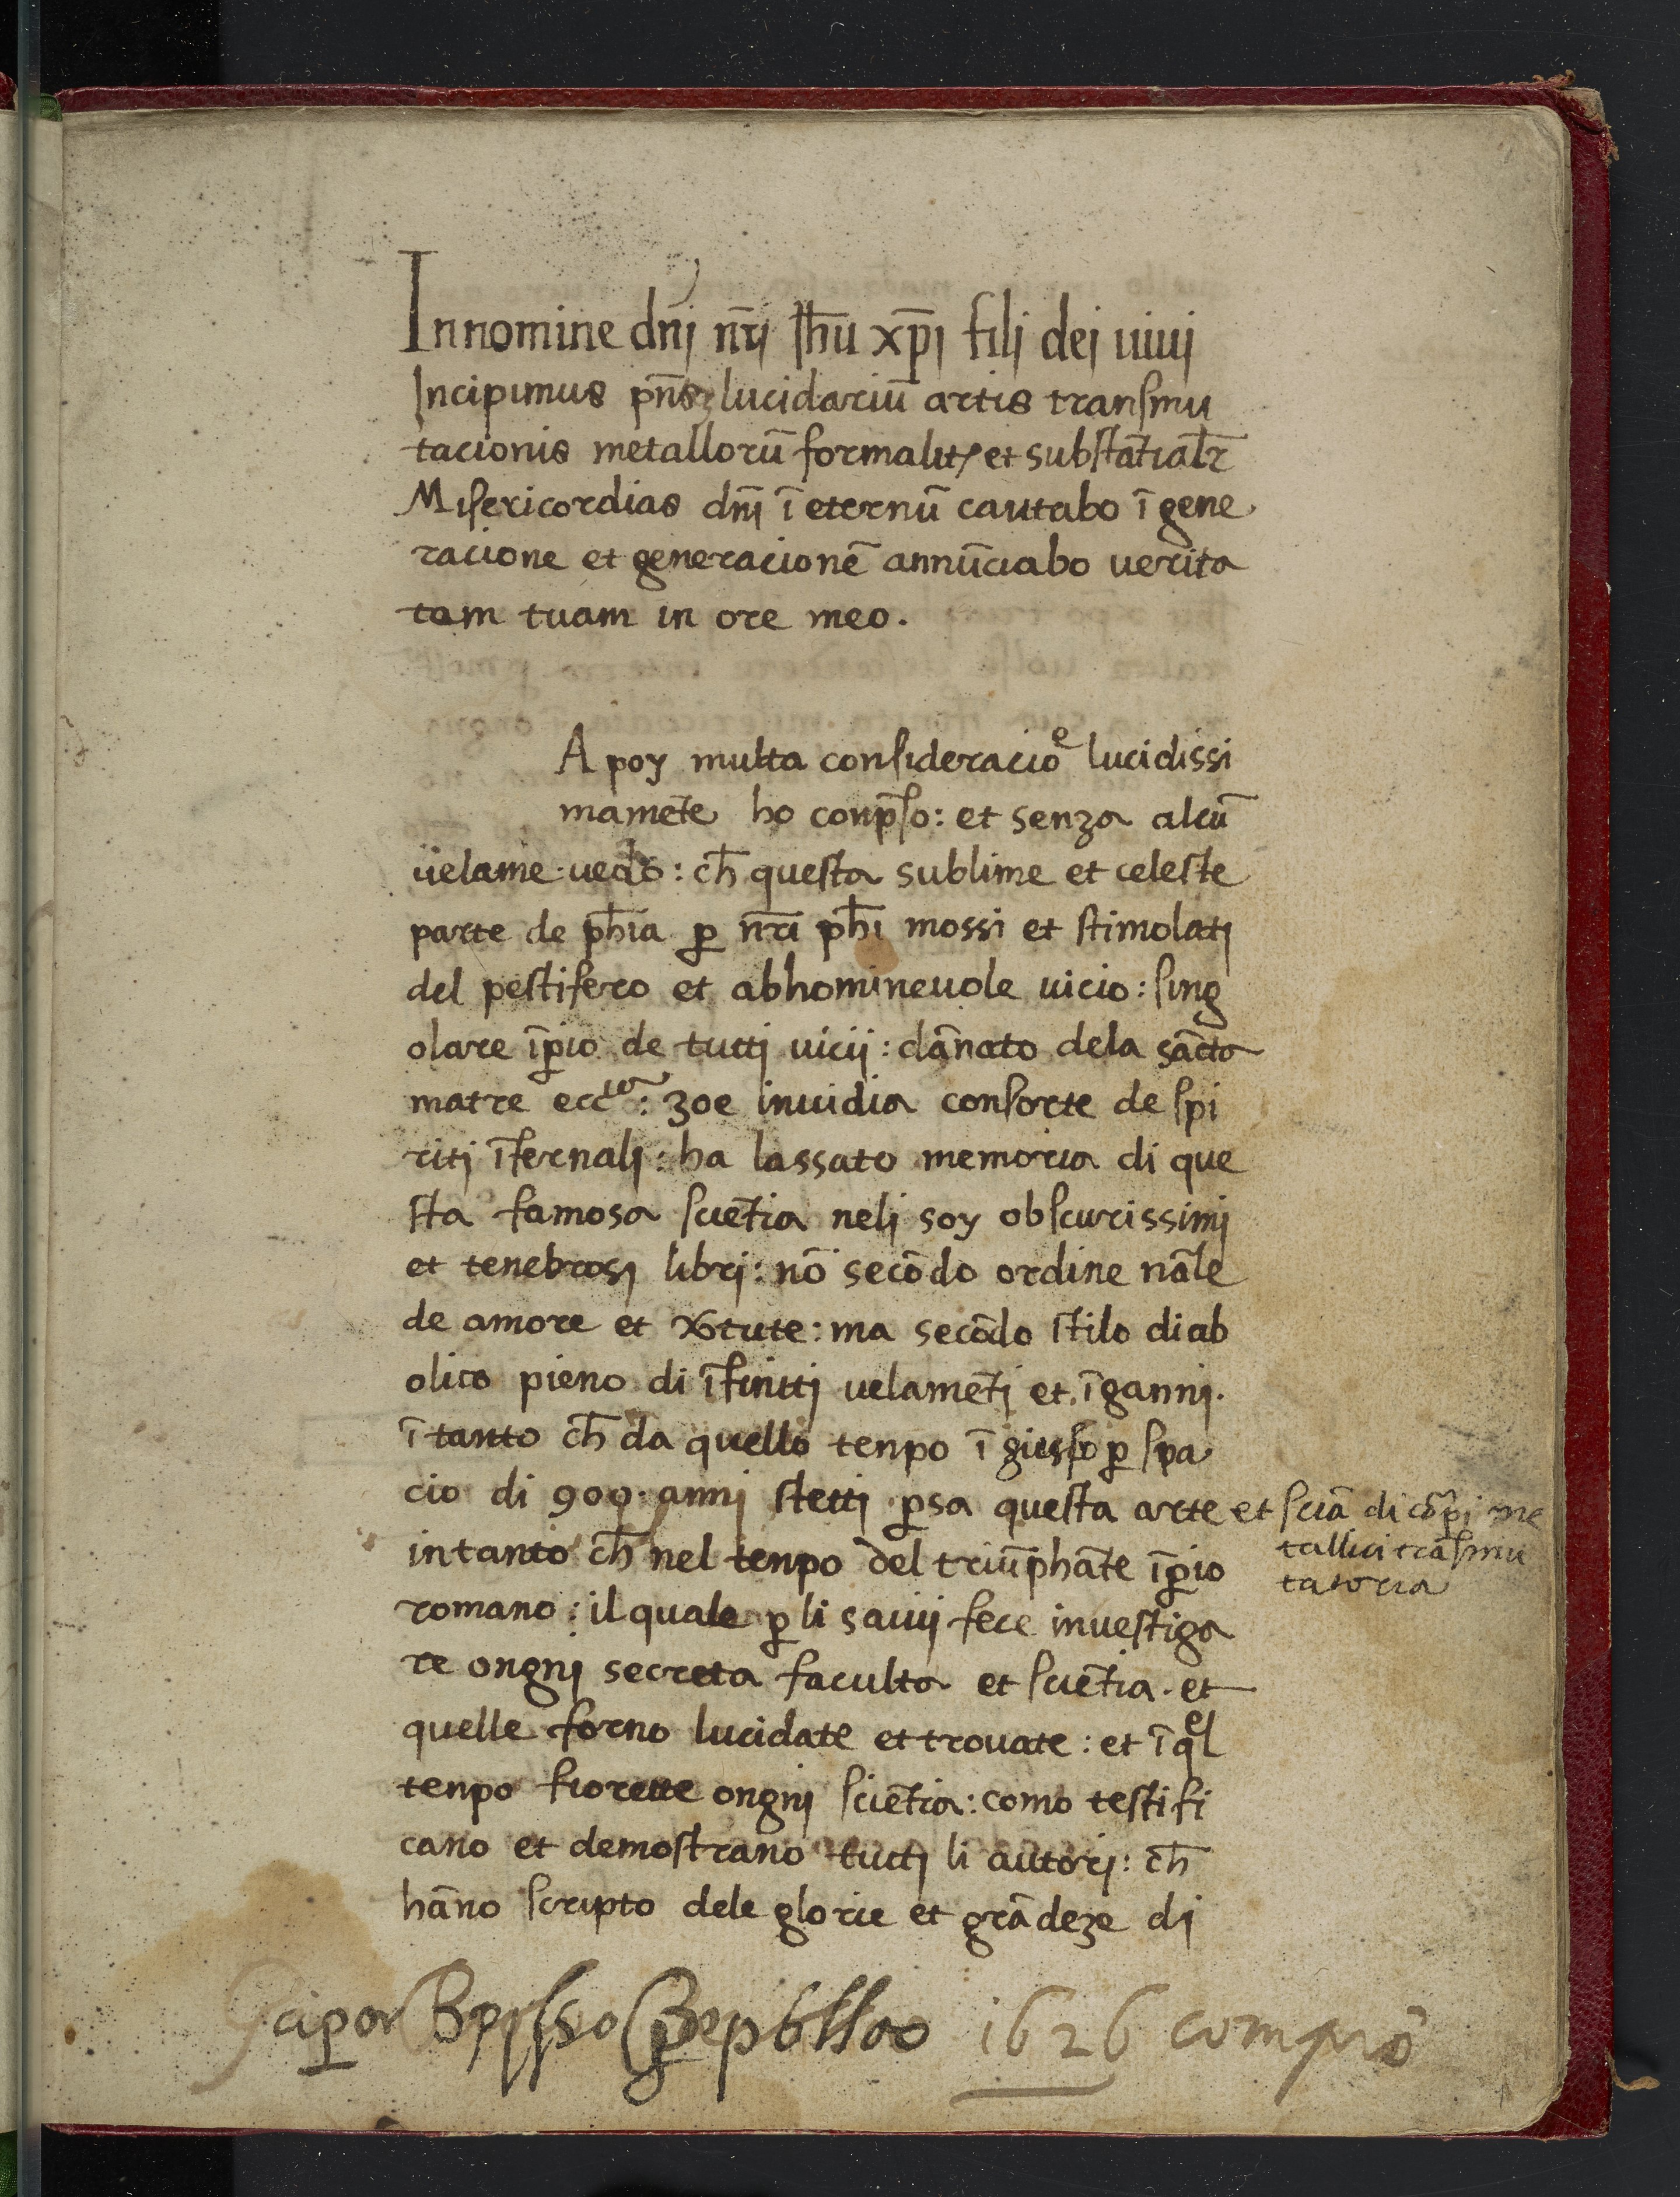 In nomine dn̄j nr̄j Ih̄u xp̄i filj dej uiuj
Incipimus pn̄s lucidariū artis tranſmu
tacionis metallorū formalit et subſtāt̄ialr̄
Miſericordias dn̄j ī eternū cantabo ī gene
racione et generacionē annūciabo uerita
tem tuam in ore meo.
A poy multa conſideracioe lucidissi
mamēte ho conp̄ſo: et senza alcū
uelame uedo: ch̄ queſta sublime et celeſte
parte de ph̄ia ꝑ nr̄i ph̄i mossi et ſtimolatj
del peſtifero et abhomineuole uicio: ſing
olare īꝑio de tuttj uicij: dānato dela sāct̄a
matre eccia: zoe inuidia conſorte de ſpi
ritj īfernalj: ha lassato memoria di que
ſta famosa ſciēt̄ia nelj soy obſcurissimj
et tenebrosj librj: nō secōdo ordine nāl̄e
de amore et xtute: ma secōdo ſtilo diab
olico pieno di īfinitj uelamēt̄j et īgannj.
ī tanto ch̄ da quello tenpo ī giuſſo ꝑ ſpa
cio di 900 annj ſtettj ꝑsa queſta arte et ſciā di cōrpi me
tallici trāſmu
tatoria
in tanto ch̄ nel tenpo del triūphāt̄e īꝑio
romano: il quale ꝑ li sauij fece inueſtiga
re ongnj secreta faculta et ſciēt̄ia. et
quelle forno lucidate et trouate: et ī qel
tenpo fiorette ongnj ſciēt̄ia: como teſtifi
cano et demoſtrano tuttj li autorj: ch̄
hāno ſcripto dele glorie et grādeze dj
1626 comprò